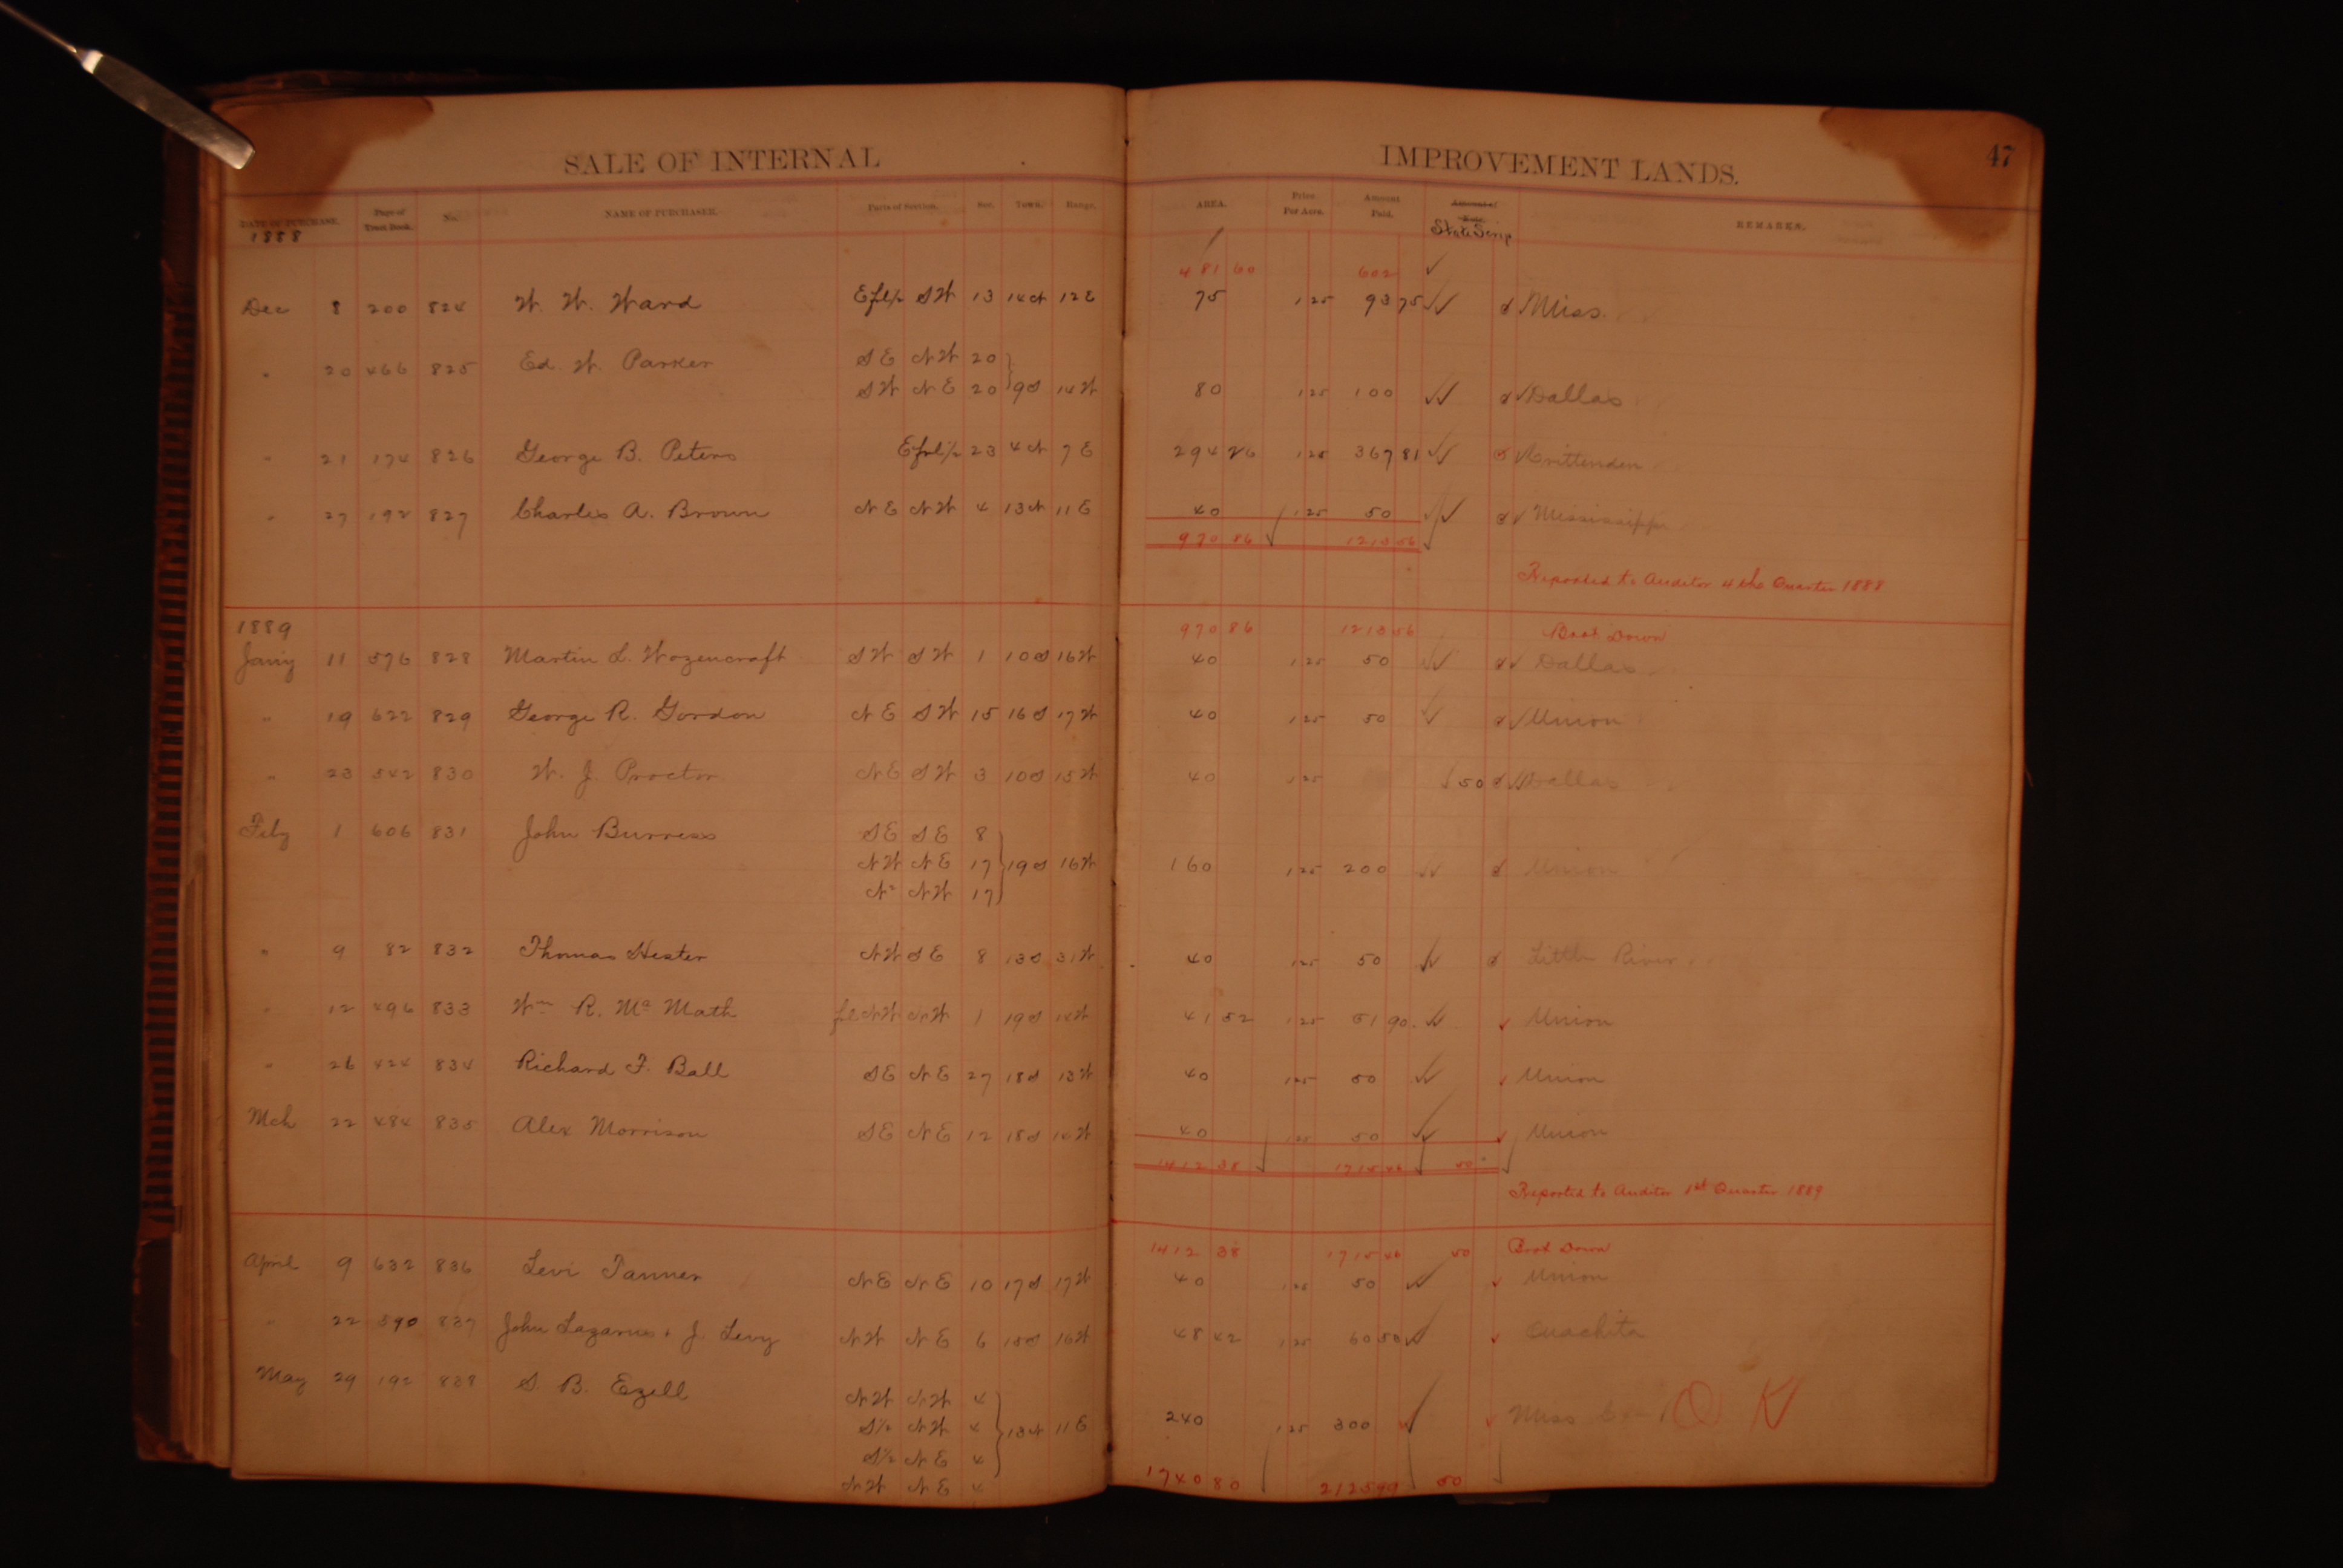 SALE OF INTERNAL IMPROVEMENT LANDS. 47
DATE OF PURCHASE. Page of Tract Book. No. NAME OF PURCHASER. Parts of Section. Sec. Town. Range. AREA. Price Per Acre. Amount Paid. Amount of State Scrip REMARKS.
1888
481 60 602
Dec 8 200 824 W. W. Ward E fl 1/2 SW 13 14N 12E 75 1 25 93 75 Miss.
" 20 466 825 Ed. W. Parker SE NW 20
SW NE 20 9S 14W 80 1 25 100 Dallas
" 21 174 826 George B. Peters E frl 1/2 23 4N 7E 294 26 1 25 367 81 Crittenden
" 27 192 827 Charles A. Brown NE NW 4 13N 11E 40 1 25 50 Mississippi
970 86 1213 56
Reported to Auditor 4th Quarter 1888
1889 970 86 1213 56 Brot Down
Jany 11 576 828 Martin L. Wozencraft SW SW 1 10S 16W 40 1 25 50 Dallas
" 19 622 829 George R. Gordon NE SW 15 16S 17W 40 1 25 50 Union
" 23 542 830 W. J. Proctor NE SW 3 10S 15W 40 1 25 50 Dallas
Feby 1 606 831 John Burress SE SE 8
NW NE 17 19S 16W 160 1 25 200 Union
N2 NW 17
" 9 82 832 Thomas Hester NW SE 8 13S 31W 40 1 25 50 Little River
" 12 496 833 Wm R. Mc Math fl NW NW 1 19S 14W 41 52 1 25 51 90 Union
" 26 424 834 Richard F. Ball SE NE 27 18S 13W 40 1 25 50 Union
Mch 22 484 835 Alex Morrison SE NE 12 18S 14W 40 1 25 50 Union
1412 38 1715 46 50
Reported to Auditor 1st Quarter 1889
1412 38 1715 46 50 Brot Down
April 9 632 836 Levi Tanner NE NE 10 17S 17W 40 1 25 50 Union
" 22 590 837 John Lazarus & J. Levy NW NE 6 15S 16W 48 42 1 25 60 50 Ouachita
May 29 192 838 S. B. Ezell NW NW 4
S1/2 NW 4 13N 11E 240 1 25 300 Miss Co O K
S1/2 NE 4
NW NE 4
1740 80 2125 99 50